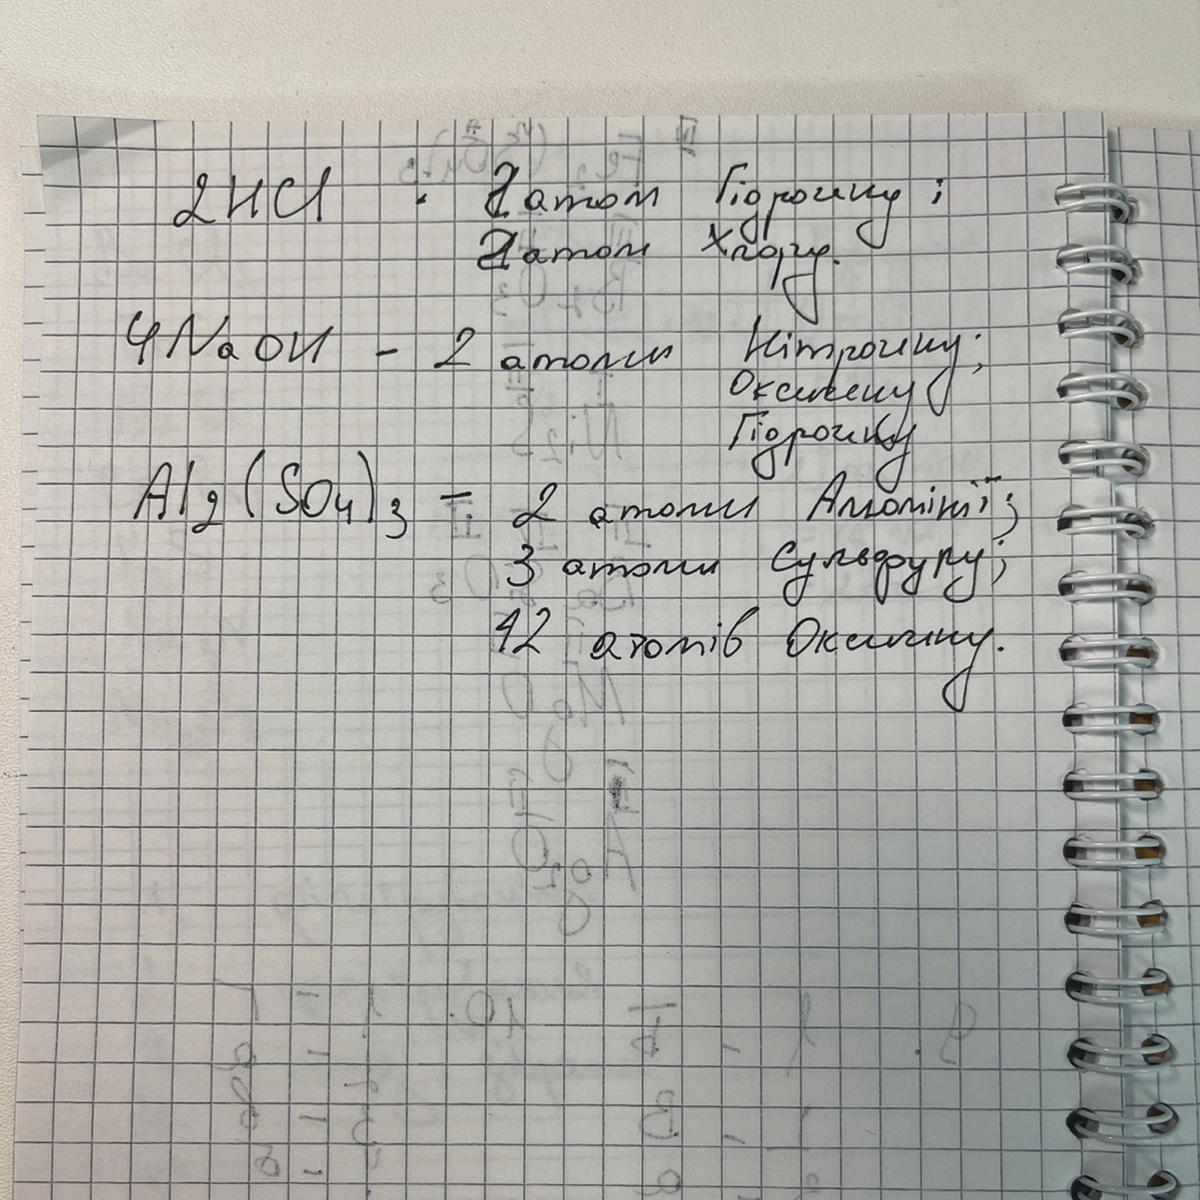 2HCl - 2 атом Гідрогину;
2 атом Хлору.
4NaOH - 2 атоми Нітрогину;
Оксигену
Гідрогину
Al₂(SO₄)₃ - 2 атоми Алюмінії;
3 атоми Сульфуру;
12 атомів Оксигину.